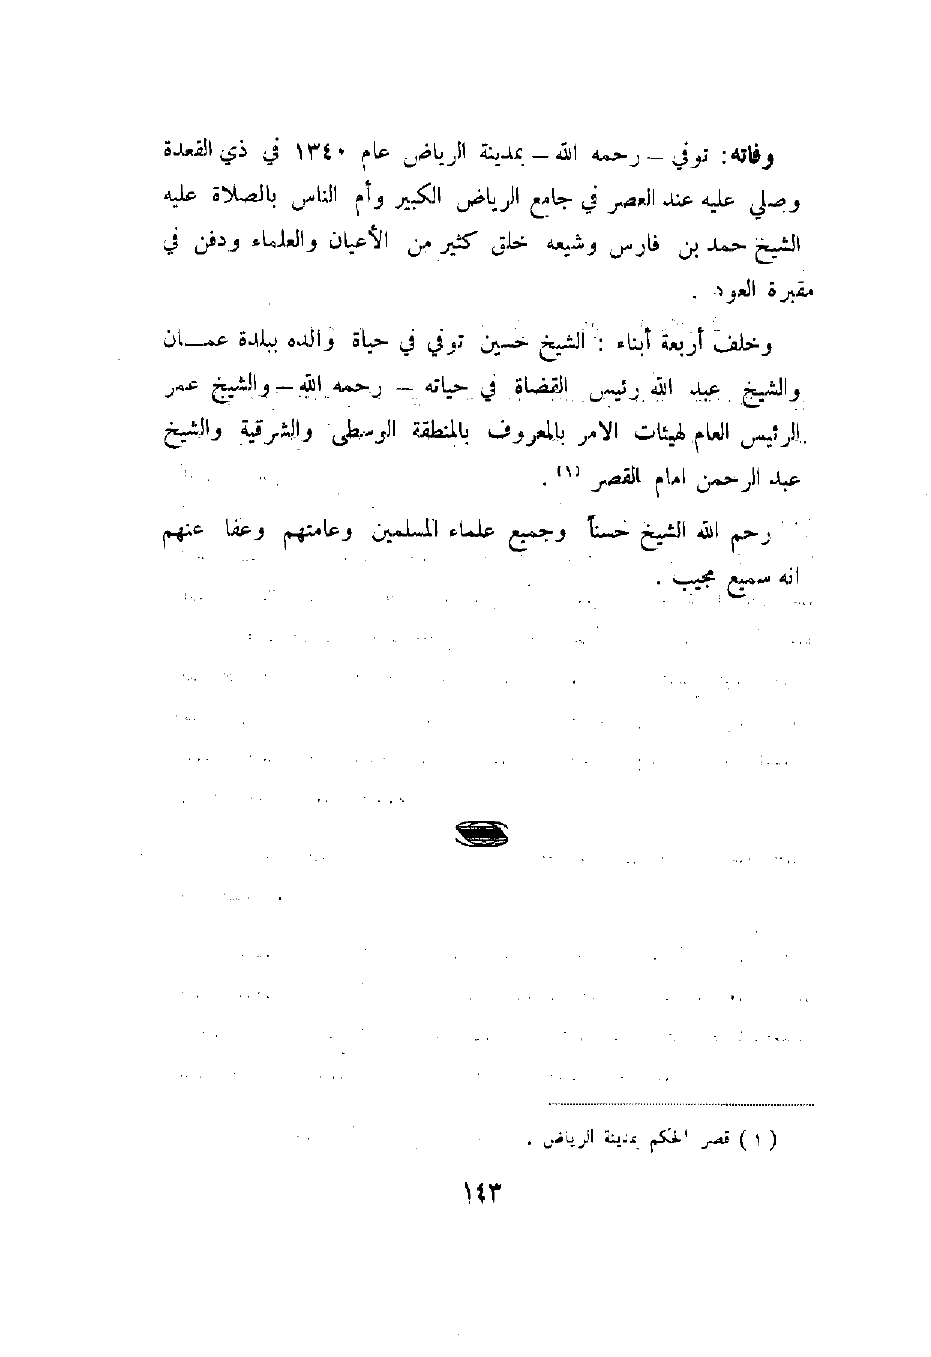 وفاته : توفي – رحمه الله – بمدينة الرياض عام ١٣٤٠ في ذي القعدة
وصلي عليه عند العصر في جامع الرياض الكبير وأم الناس بالصلاة عليه
الشيخ حمد بن فارس وشيعه خلق كثير من الأعيان والعلماء ودفن في
مقبرة العود .
وخلف أربعة أبناء : الشيخ حسين توفي في حياة والده ببلدة عمـــان
والشيخ عبد الله رئيس القضاة في حياته – رحمه الله – والشيخ عمر
الرئيس العام لهيئات الامر بالمعروف بالمنطقة الوسطى والشرقية والشيخ
عبد الرحمن امام القصر (١) .
رحم الله الشيخ حسناً وجميع علماء المسلمين وعامتهم وعفا عنهم
انه سميع مجيب .
( ١ ) قصر الحكم بمدينة الرياض .
١٤٣